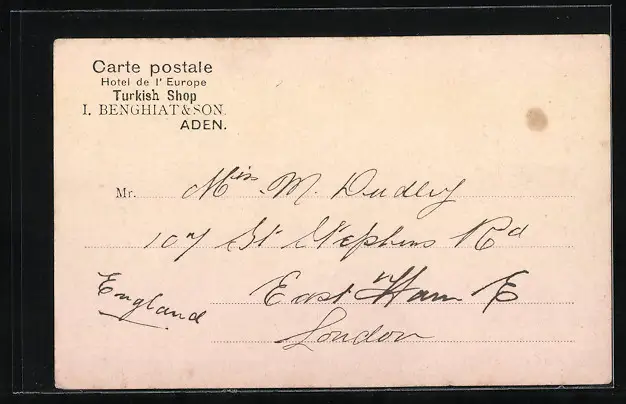 Carte postale
Hotel de l' Europe
Turkish Shop
I. BENGHIAT & SON.
ADEN.
Mr. Miss M. Dudley
107 St Stephens Rd
East Ham E
London
England